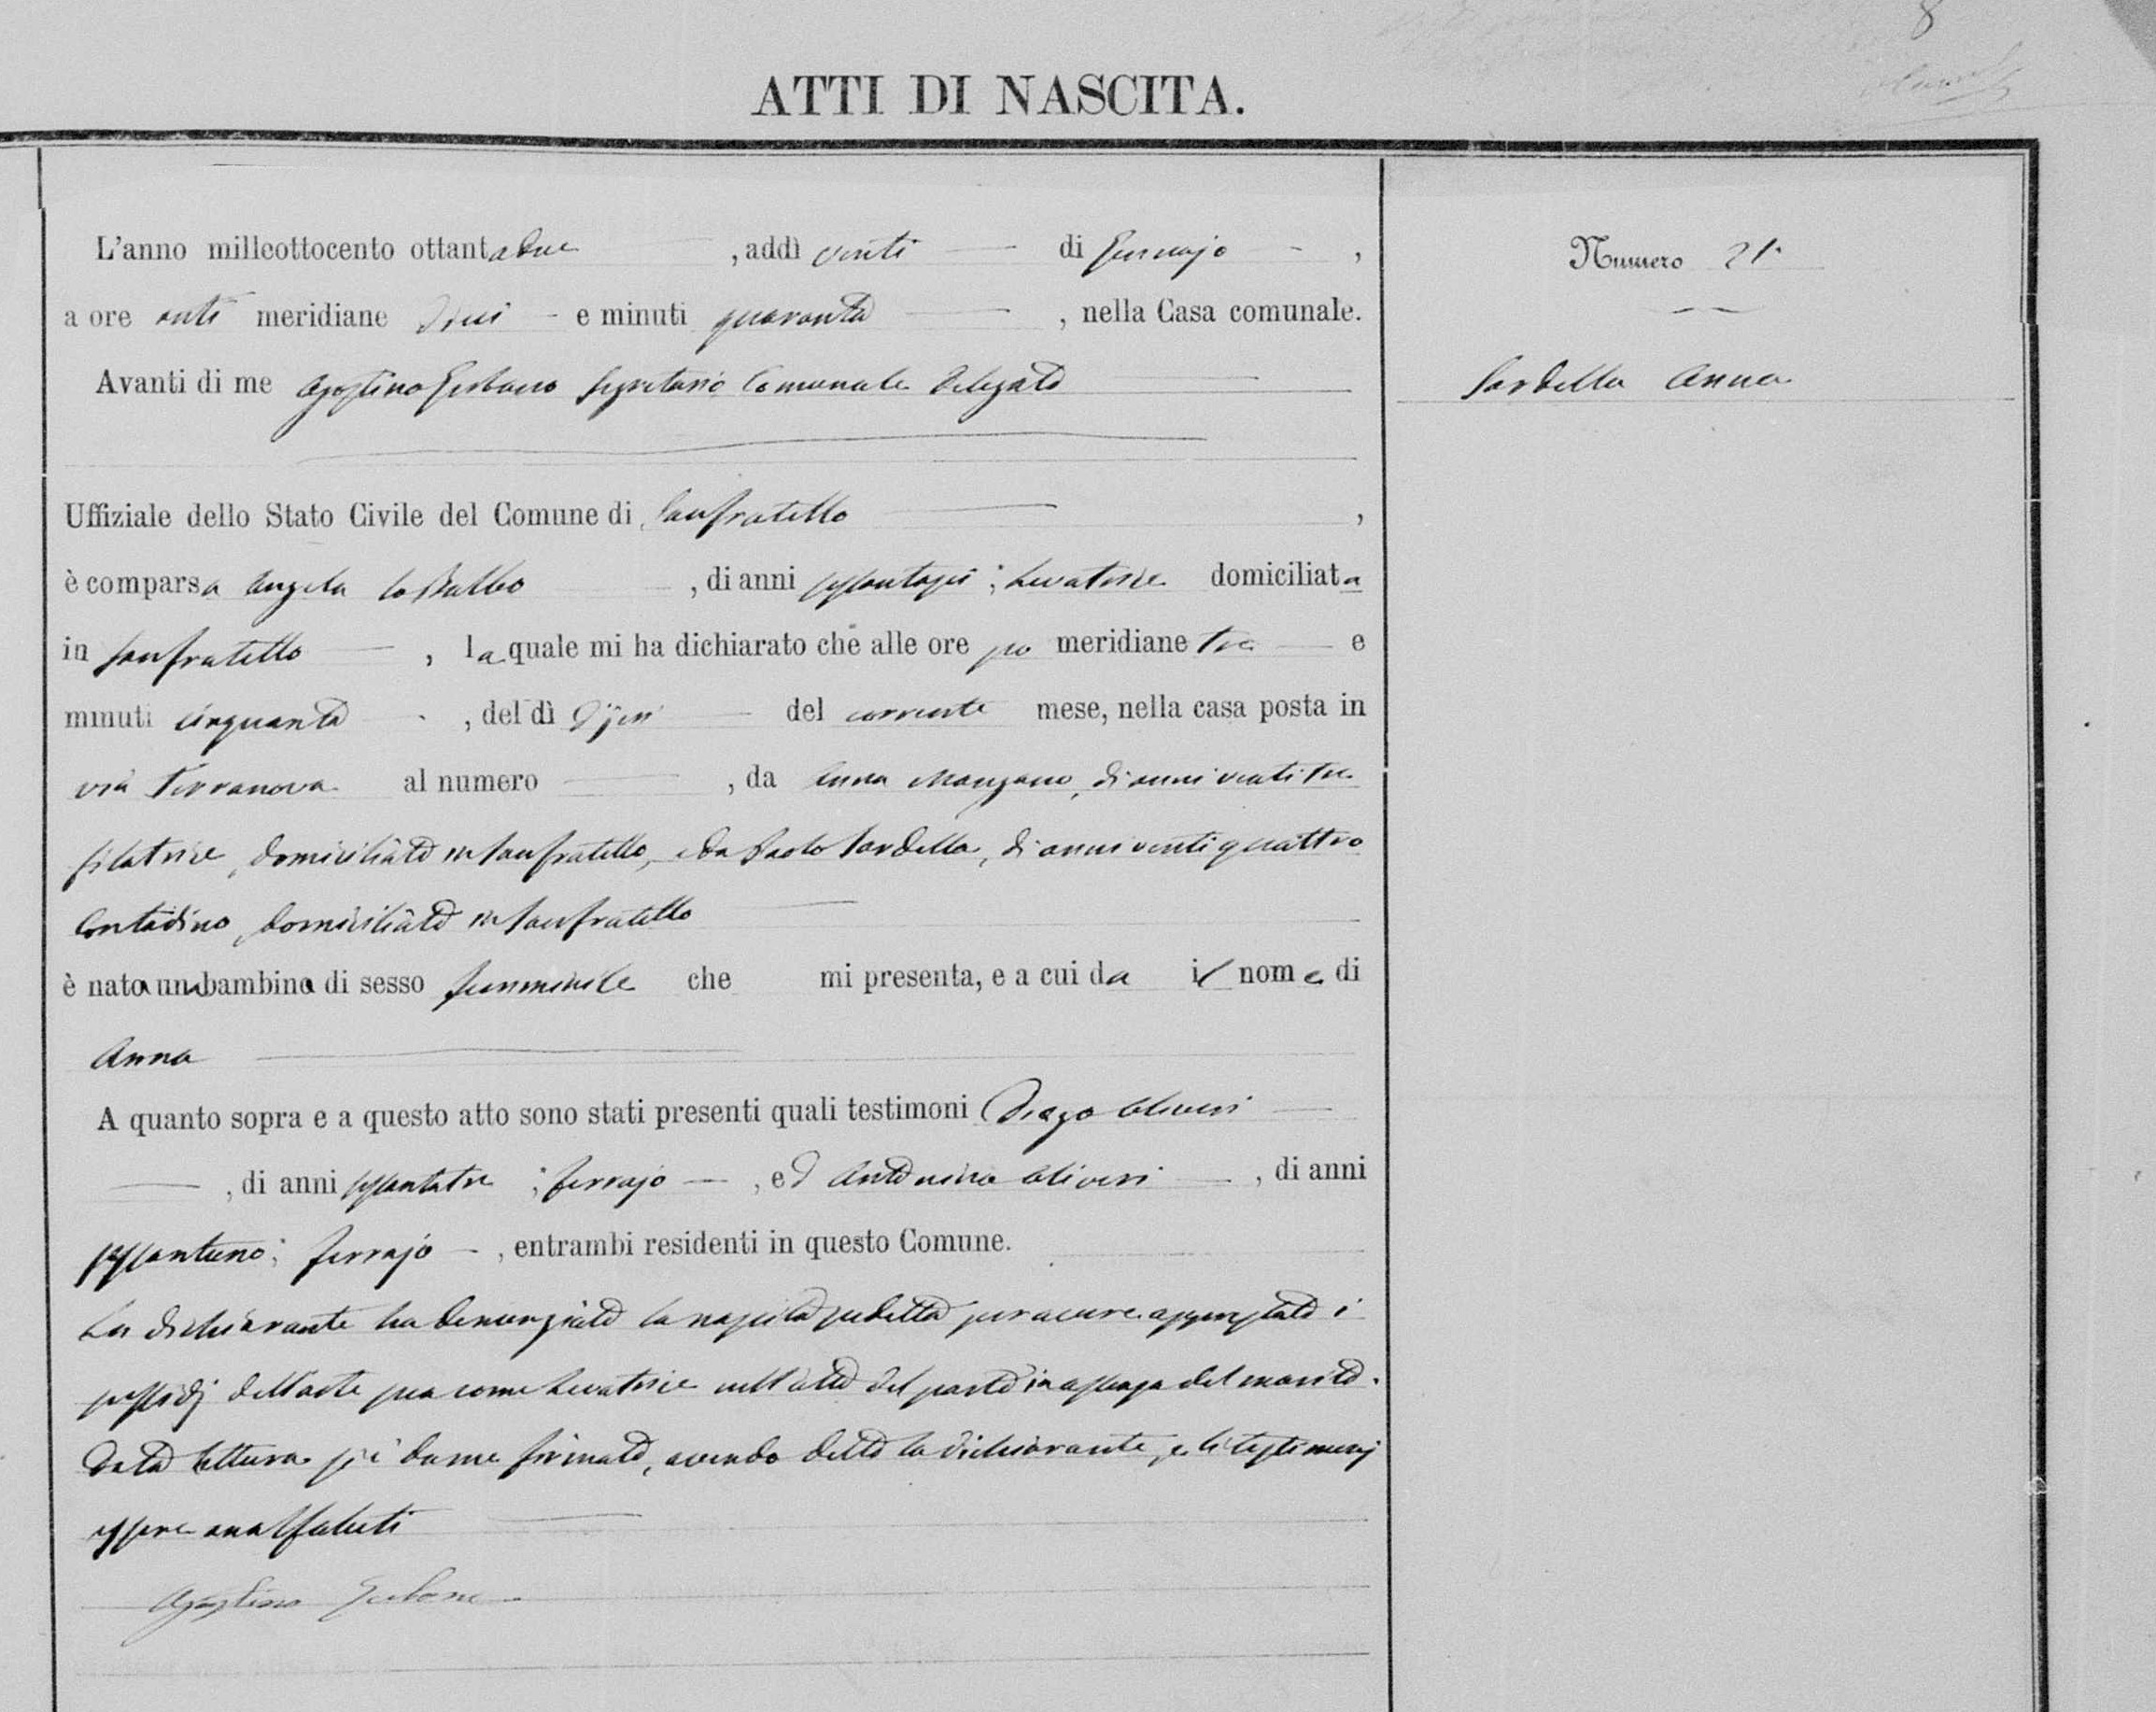 8
ATTI DI NASCITA.
L'anno milleottocento ottantadue, addì venti di Gennajo,
a ore anti meridiane dieci e minuti quaranta, nella Casa comunale.
Avanti di me Agostino Segretario Comunale Delegato
Uffiziale dello Stato Civile del Comune di Sanfratello,
è comparsa Angela Lo Balbo, di anni sessantasei; Levatrice domiciliata
in Sanfratello, la quale mi ha dichiarato che alle ore po meridiane tre e
minuti cinquanta, del dì dieci del corrente mese, nella casa posta in
via Terranova al numero, da Anna Mangano, di anni ventitre
filatrice, domiciliata in Sanfratello, e da Paolo Sardella, di anni ventiquattro
Contadino, domiciliato in Sanfratello
è nata una bambina di sesso femminile che mi presenta, e a cui da il nome di
Anna
A quanto sopra e a questo atto sono stati presenti quali testimoni Diego Oliveri
, di anni sessantatre; ferrajo, ed Antonino Oliveri, di anni
sessantuno; ferrajo, entrambi residenti in questo Comune.
La dichiarante ha denunziato la nascita sudetta per avere apprestato i
sussidj dell'arte sua come Levatrice nell'atto del parto in assenza del marito.
Data lettura si è da me firmato, avendo detto la dichiarante, e li testimonj
essere analfabeti
Agostino
Numero 21.
Sardella Anna